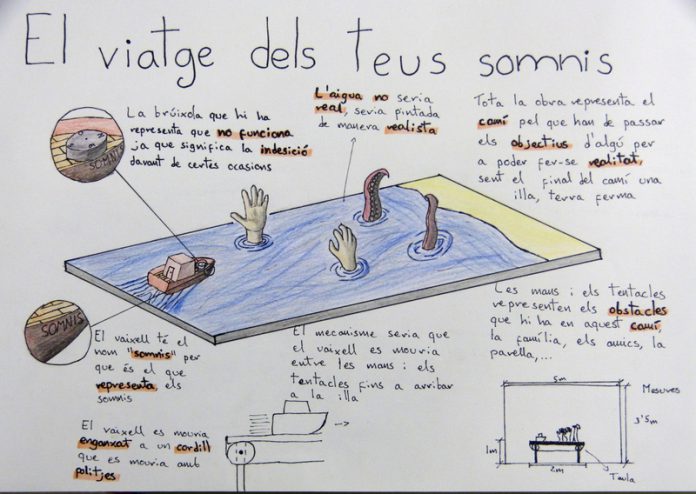 El viatge dels teus somnis
La brúixola que hi ha
representa que no funciona
ja que significa la indesició
davant de certes ocasions
L'aigua no seria
real, seria pintada
de manera realista
Tota la obra representa el
camí pel que han de passar
els objectius d'algú per
a poder fer-se realitat,
sent el final del camí una
illa, terra ferma
SOMNIS
SOMNIS
El vaixell té el
nom "somnis" per
que és el que
representa els
somnis
El mecanisme seria que
el vaixell es mouria
entre les mans i els
tentacles fins a arribar
a la illa
Les mans i els tentacles
representen els obstacles
que hi ha en aquest camí,
la família, els amics, la
parella,...
El vaixell es mouria
enganxat a un cordill
que es mouria amb
politjes
5m
Mesures
3'5m
1m
2m
Taula